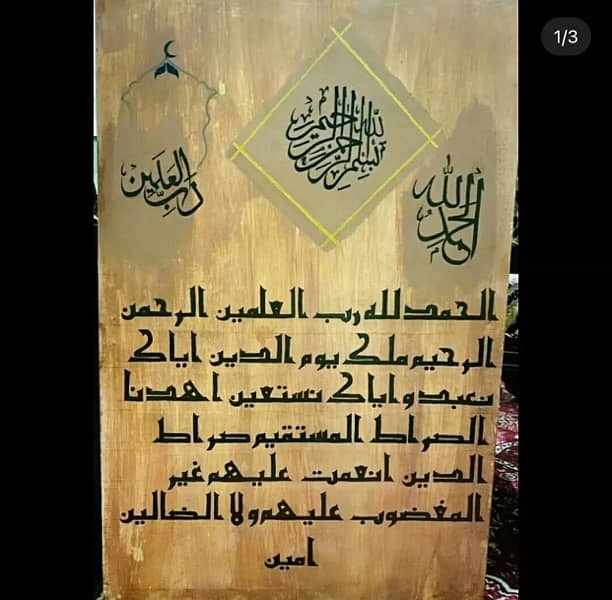 1/3
بسم الله الرحمن الرحيم
الحمد لله
رب العلمين
الحمد لله رب العلمين الرحمن
الرحيم ملك يوم الدين اياك
نعبد واياك نستعين اهدنا
الصراط المستقيم صراط
الدين انعمت عليهم غير
المغضوب عليهم ولا الضالين
امين